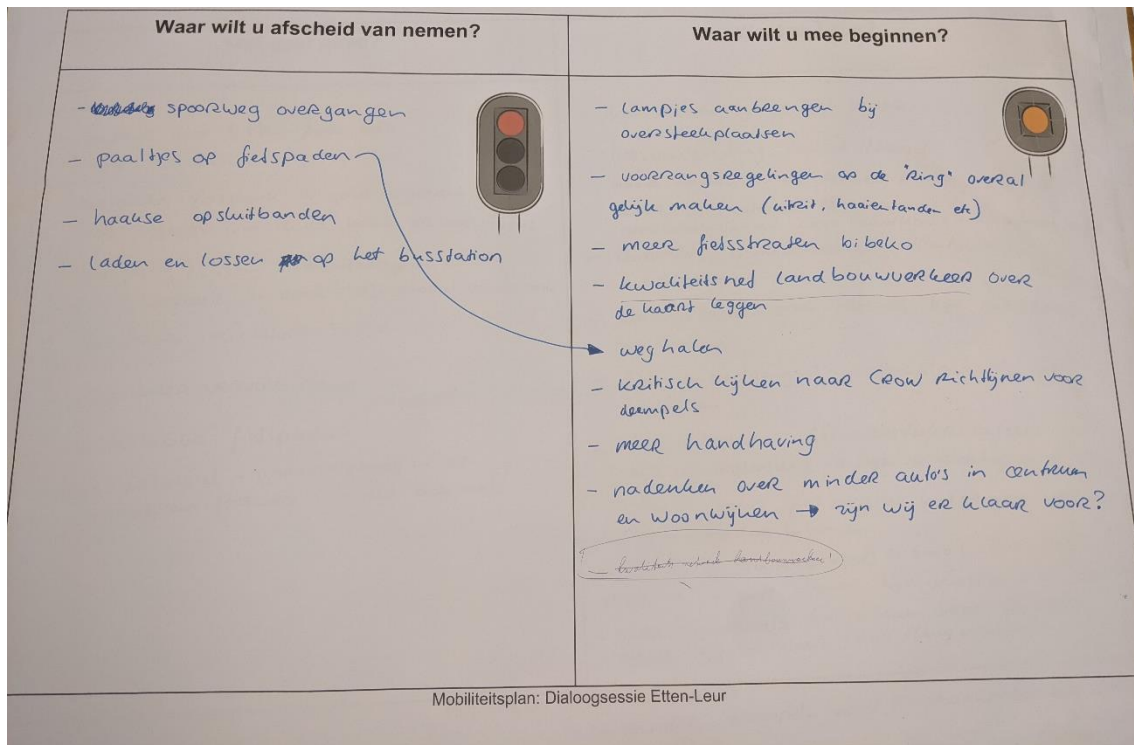 Waar wilt u afscheid van nemen?
- spoorweg overgangen
- paaltjes op fietspaden
- haakse opsluitbanden
- laden en lossen op het busstation
Waar wilt u mee beginnen?
- lampjes aanbrengen bij
oversteekplaatsen
- voorrangsregelingen op de "Ring" overal
gelijk maken (uitrit, haaientanden etc)
- meer fietsstraten bibeko
- kwaliteitsnet landbouwverkeer over
de kaart leggen
weghalen
- kritisch kijken naar CROW richtlijnen voor
drempels
- meer handhaving
- nadenken over minder auto's in centrum
en woonwijken → zijn wij er klaar voor?
Mobiliteitsplan: Dialoogsessie Etten-Leur